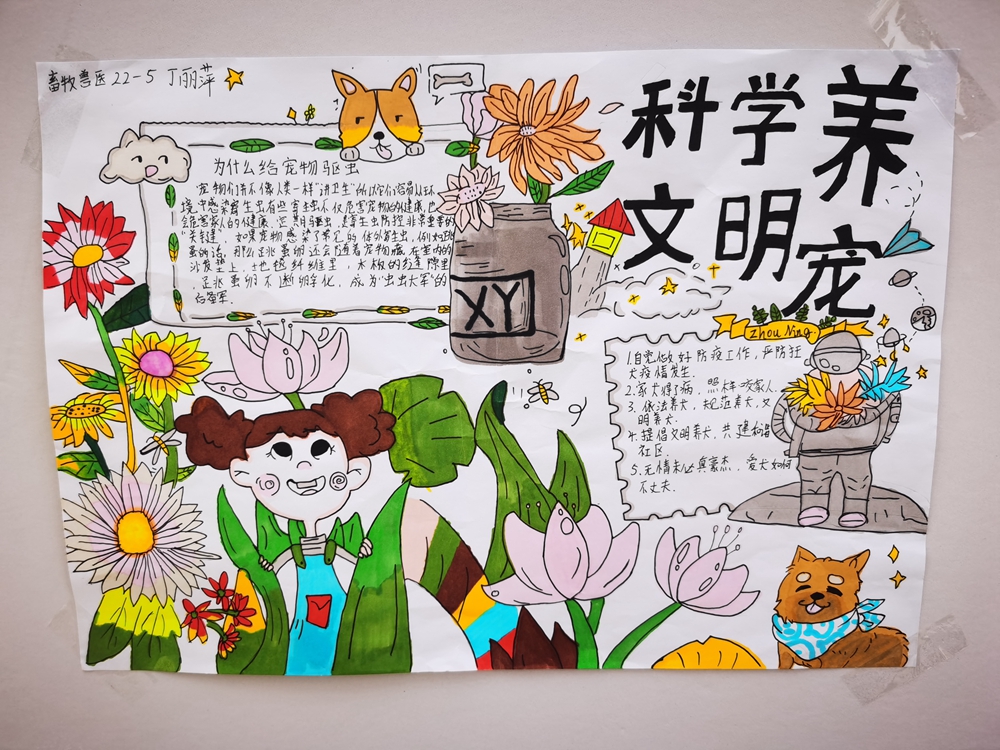 畜牧兽医22-5 丁丽萍
科学养
文明宠
为什么给宠物驱虫
宠物们并不像人类一样"讲卫生"所以它们容易从环
境中感染寄生虫有些寄生虫不仅危害宠物的健康,也
会危害家人的健康.定期驱虫,是寄生虫防控非常重要的
"关键".如果宠物感染了常见的体外寄生虫,例如跳
蚤的话,那么跳蚤卵还会随着宠物藏在室内的
沙发垫上,地毯纤维里,木板的缝隙里
,跳蚤卵不断孵化,成为"出虫大军"的
后备军.
XY
zhou Ning
1.自觉做好防疫工作,严防狂
犬疫情发生.
2.家犬得了病,照样咬家人.
3.依法养犬,规范养犬,文
明养犬.
4.提倡文明养犬,共建和谐
社区.
5.无情未必真豪杰,爱犬如何
不丈夫.